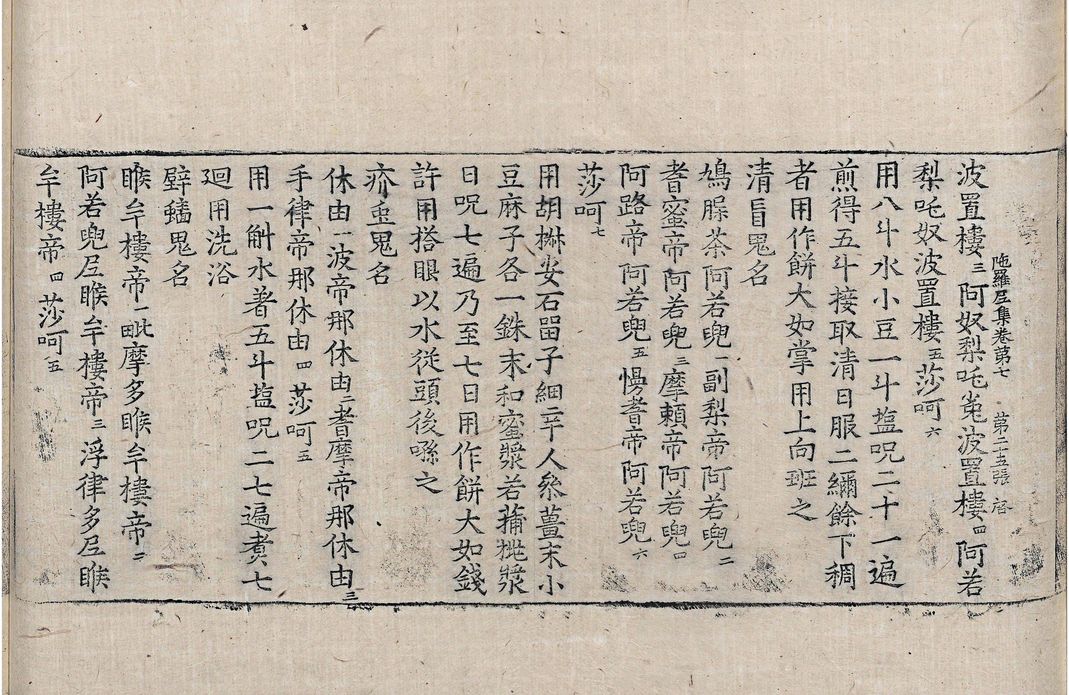 陁羅尼集卷第七 第二十五張 啓
波置樓三阿奴梨吒㝹波置樓四阿若
梨吒奴波置樓五莎呵六
用八斗水小豆一斗塩呪二十一遍
煎得五斗接取清日服二㢽餘下稠
者用作餅大如掌用上向班之
清盲鬼名
鳩腜茶阿若兜一副梨帝阿若兜二
耆蜜帝阿若兜三摩賴帝阿若兜四
阿路帝阿若兜五慢耆帝阿若兜六
莎呵七
用胡椒安石留子細辛人叅薑末小
豆麻子各一銖末和蜜漿若蒱桃漿
日呪七遍乃至七日用作餅大如錢
許用搭眼以水從頭後噀之
疥虫鬼名
休由一波帝那休由二耆摩帝那休由三
手律帝那休由四莎呵五
用一斛水著五斗塩呪二七遍煮七
迴用洗浴
躄鬼名
睺牟樓帝一毗摩多睺牟樓帝二
阿若兜尼睺牟樓帝三浮律多尼睺
牟樓帝四莎呵五